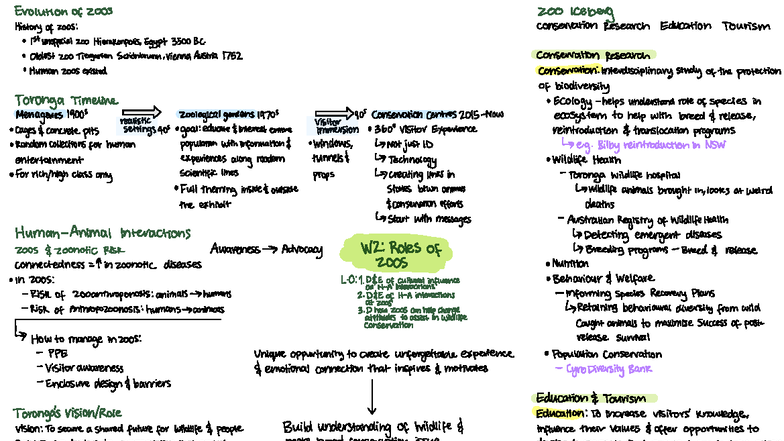 Evolution of zoos
History of zoos:
• 1st unofficial zoo Hierakonpolis, Egypt 3500 BC
• Oldest zoo Tiergarten Schönbrunn, Vienna Austria 1752
• Human zoos existed
Toronga Timeline
Menageries 1900s
• Cages & concrete pits
• Random collections for human
entertainment
• For rich/high class only
realistic
settings 40s
Zoological gardens 1970s
• goal: educate & interest entire
population with information &
experiences along random
scientific lines
• Full theming inside & outside
the exhibit
90s
Visitor
immersion
• windows,
tunnels &
props
Conservation Centres 2015-Now
• 360° Visitor Experience
↳ Not just ID
↳ Technology
↳ Creating links in
states btwn animals
& conservation efforts
↳ Start with messages
Human-Animal Interactions
Zoos & Zoonotic Risk
connectedness = ↑ in zoonotic diseases
• In zoos:
- Risk of zooanthroponosis: animals → humans
- Risk of Anthropozoonosis: humans → animals
↳ How to manage in zoos:
- PPE
- Visitor awareness
- Enclosure design & barriers
Toronga's Vision/Role
Vision: To secure a shared future for wildlife & people
Awareness → Advocacy
W2: Roles of
zoos
L.O: 1. D&E of cultural influence
of H-A interactions
2. D&E of H-A interactions
at zoos
3. D how zoos can help change
attitudes to assist in wildlife
conservation
Unique opportunity to create unforgettable experience
& emotional connection that inspires & motivates
Build understanding of wildlife &
Zoo Iceberg
conservation Research Education Tourism
Conservation Research
Conservation: Interdisciplinary study of the protection
of biodiversity
• Ecology - helps understand role of species in
ecosystem to help with breed & release,
reintroduction & translocation programs
↳ e.g. Bilby reintroduction in NSW
• Wildlife Health
- Toronga wildlife hospital
↳ wildlife animals brought in, looks at weird
deaths
- Australian Registry of Wildlife Health
↳ Detecting emergent diseases
↳ Breeding programs - Breed & release
• Nutrition
• Behaviour & Welfare
- Informing Species Recovery Plans
↳ Retaining behavioural diversity from wild
caught animals to maximise success of post-
release survival
• Population Conservation
- CyroDiversity Bank
Education & Tourism
Education: To increase visitors' knowledge,
influence their values & offer opportunities to